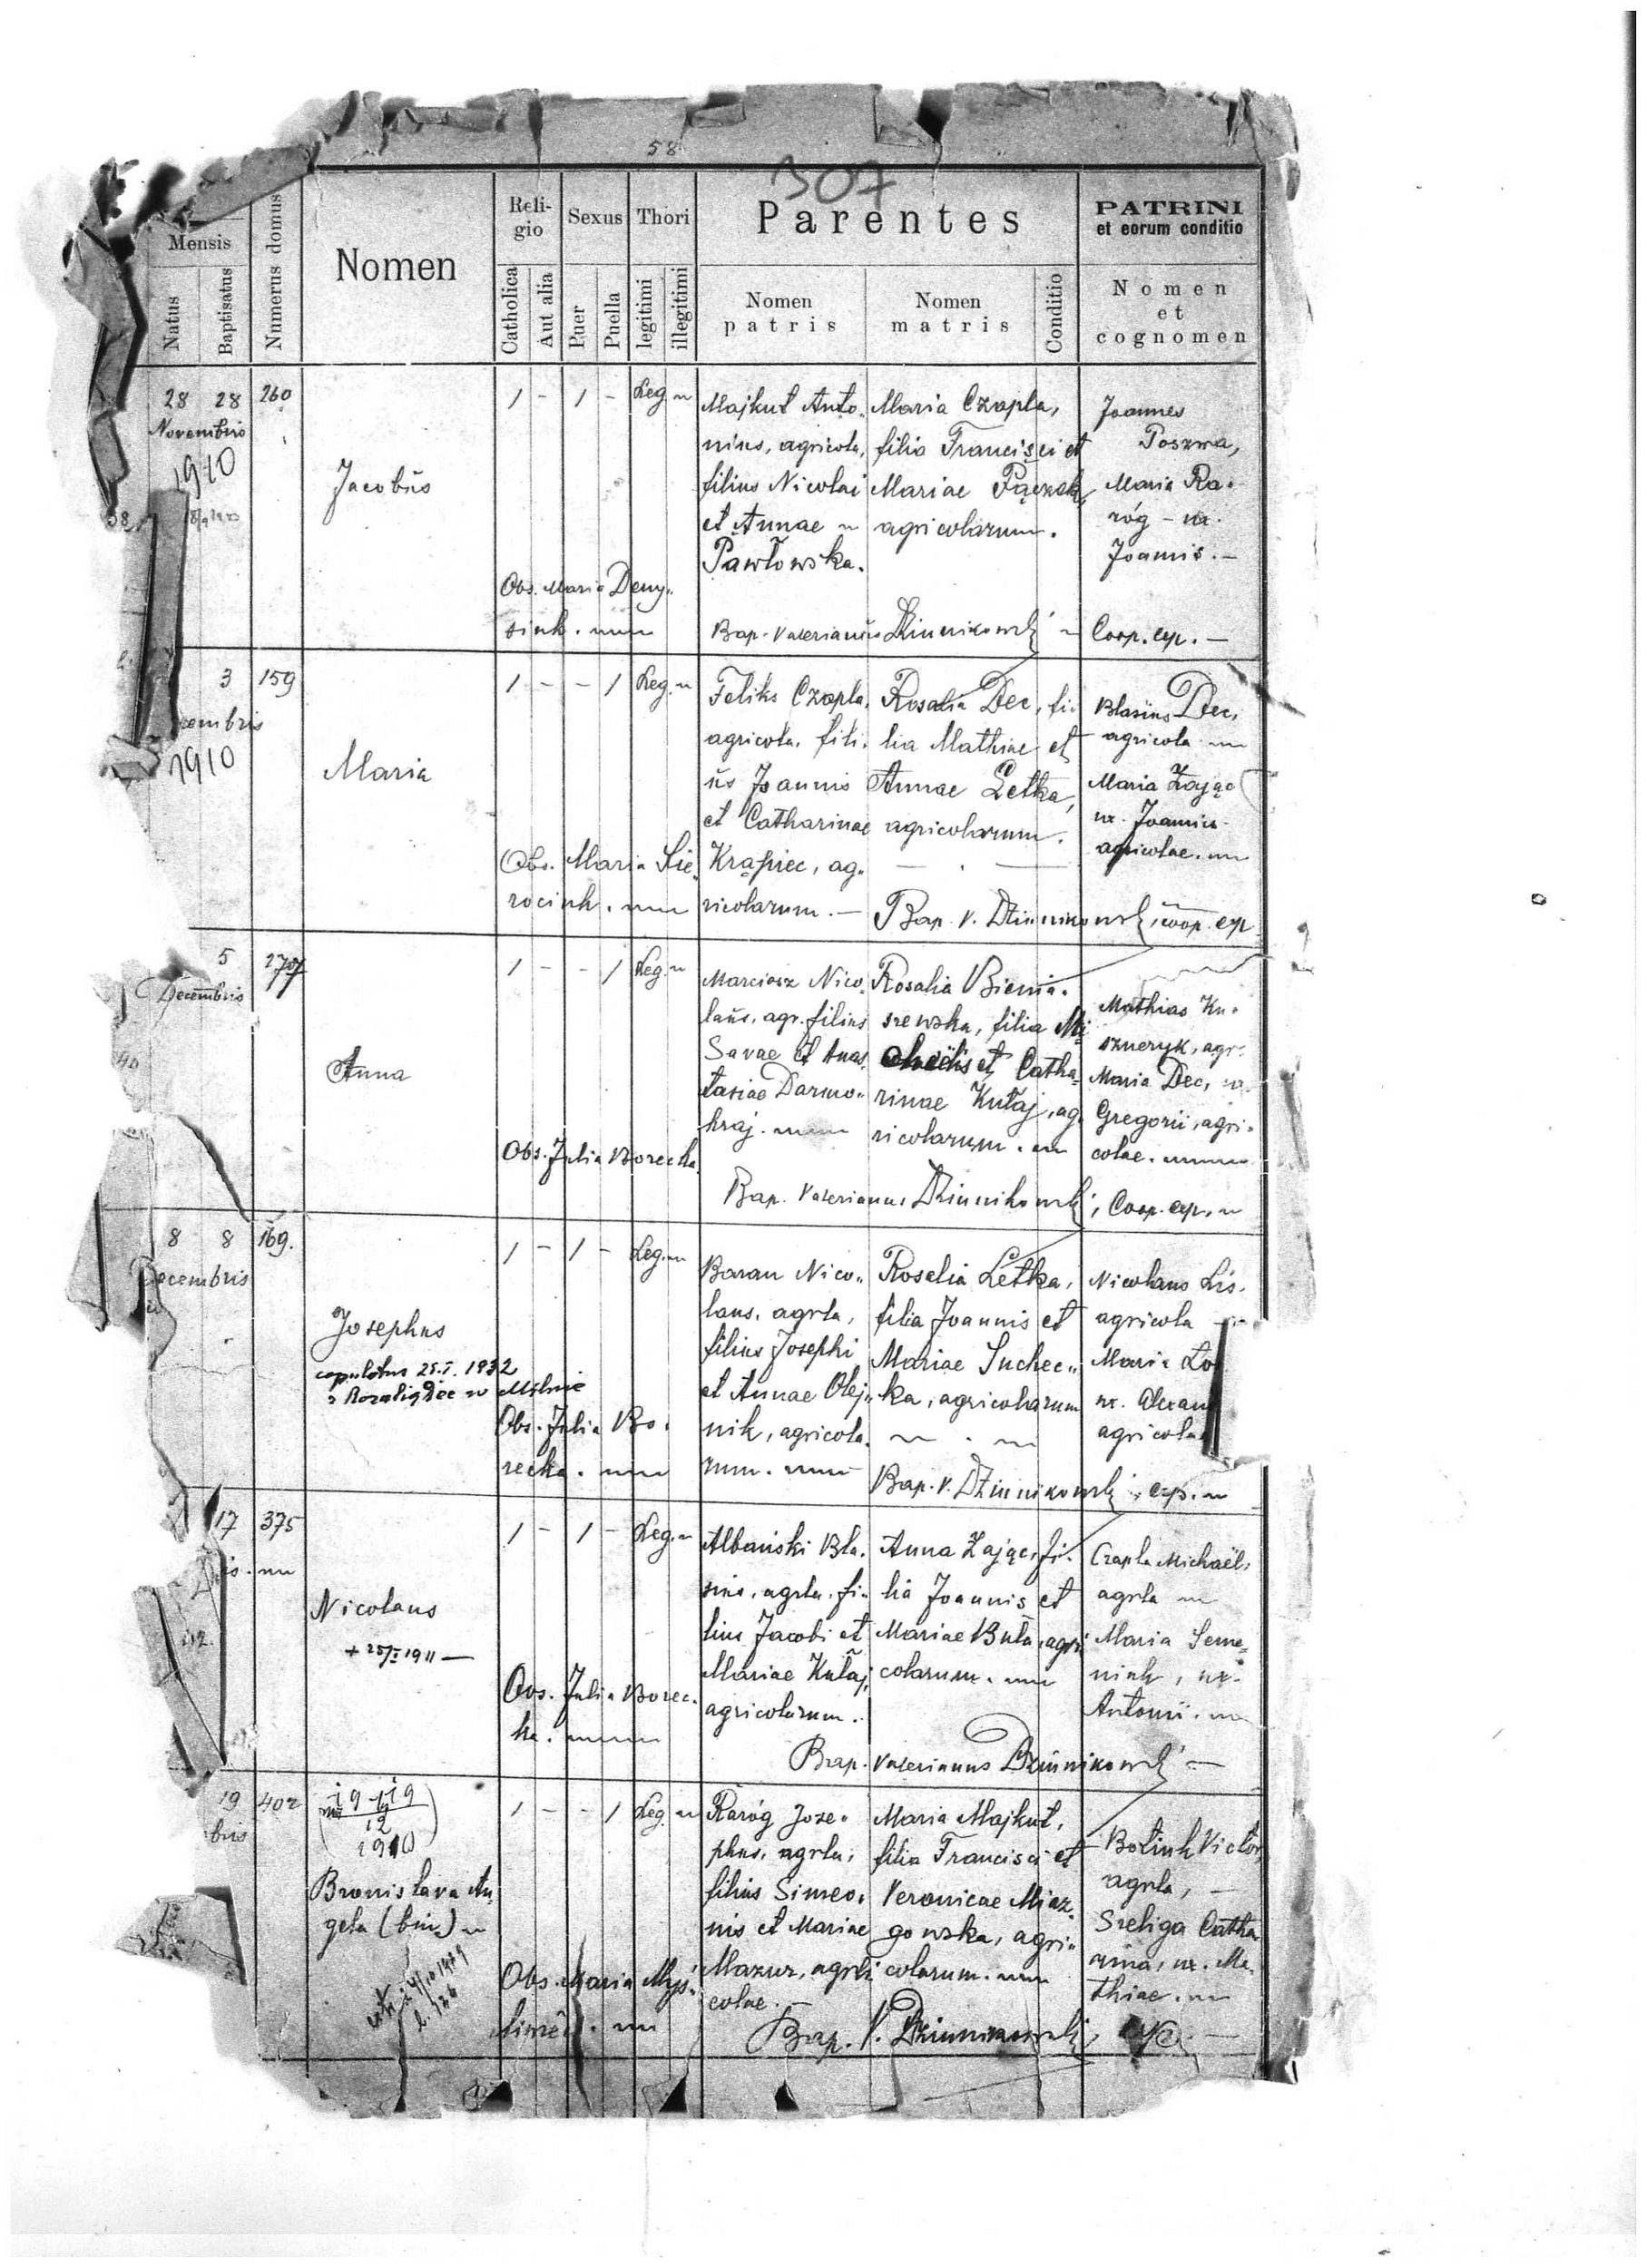 58
307
Mensis
Natus
Baptisatus
Numerus domus
Nomen
Reli-
gio
Catholica
Aut alia
Sexus
Puer
Puella
Thori
legitimi
illegitimi
Parentes
Nomen
patris
Nomen
matris
Conditio
PATRINI
et eorum conditio
Nomen
et
cognomen
28 28 260
Novembris
1910
Jacobus
1 - 1 - Leg.
Obs. Maria Deny„
siuk.
Majkut Anto„
nius, agricola,
filius Nicolai
et Annae
Pawłowska.
Maria Czapla,
filia Francisci et
Mariae Pączek,
agricolarum.
Joannes
Poszwa,
Maria Ra„
róg - ux.
Joannis. —
Bap. Valerianus Dziunikowski Coop. exp. —
3 159
embris
1910
Maria
1 - - 1 Leg.
Obs. Maria Sie„
rociuk.
Feliks Czapla,
agricola, fili„
us Joannis
et Catharinae
Krąpiec, ag„
ricolarum. —
Rosalia Dec, fi„
lia Mathiae et
Annae Letka,
agricolarum.
Blasius Dec,
agricola
Maria Zając
ux. Joannis
agricolae.
Bap. V. Dziunikowski, coop. exp
5 277
Decembris
Anna
1 - - 1 Leg.
Obs. Julia Borecka.
Marciasz Nico„
laus, agr. filius
Savae et Anas„
tasiae Darmo„
hraj.
Rosalia Bienia„
szewska, filia Mi„
chaëlis et Catha„
rinae Kutaj, ag„
ricolarum.
Mathias Ku„
szneryk, agr.
Maria Dec, ux.
Gregorii, agri„
colae.
Bap. Valerianus Dziunikowski, Coop. exp.
8 8 169.
Decembris
Josephus
copulatus 25.I.1932
z Rozalią Dec w Milnie
1 - 1 - Leg.
Obs. Julia Bo„
recka.
Baran Nico„
laus, agrla,
filius Josephi
et Annae Olej„
nik, agricola„
rum.
Rosalia Letka,
filia Joannis et
Mariae Suchec„
ka, agricolarum
Nicolaus Lis,
agricola
Maria
ux.
agricolae
Bap. V. Dziunikowski, exp.
17 375
Nicolaus
+ 25/I 1911 —
1 - 1 - Leg.
Obs. Julia Borec„
ka.
Albański Bla„
sius, agrla, fi„
lius Jacobi et
Mariae Kutaj,
agricolarum.
Anna Zając, fi„
lia Joannis et
Mariae Buła, agri
colarum.
Czapla Michaël,
agrla
Maria Seme„
niuk, ux.
Antonii.
Bap. Valerianus Dziunikowski —
19 402
bris
19-19
12
1910
Bronislava An„
gela (bin.)
1 - - 1 Leg.
Obs. Maria Myś„
Raróg Jose„
phus, agrla,
filius Simeo„
nis et Mariae
Mazur, agri
colae. —
Maria Majkut,
filia Francisci et
Veronicae Miaz„
gowska, agri„
colarum.
Botiuk Victor,
agrla, —
Szeliga Catha„
rina, ux. Ma„
thiae.
Bap. V. Dziunikowski, exp. —